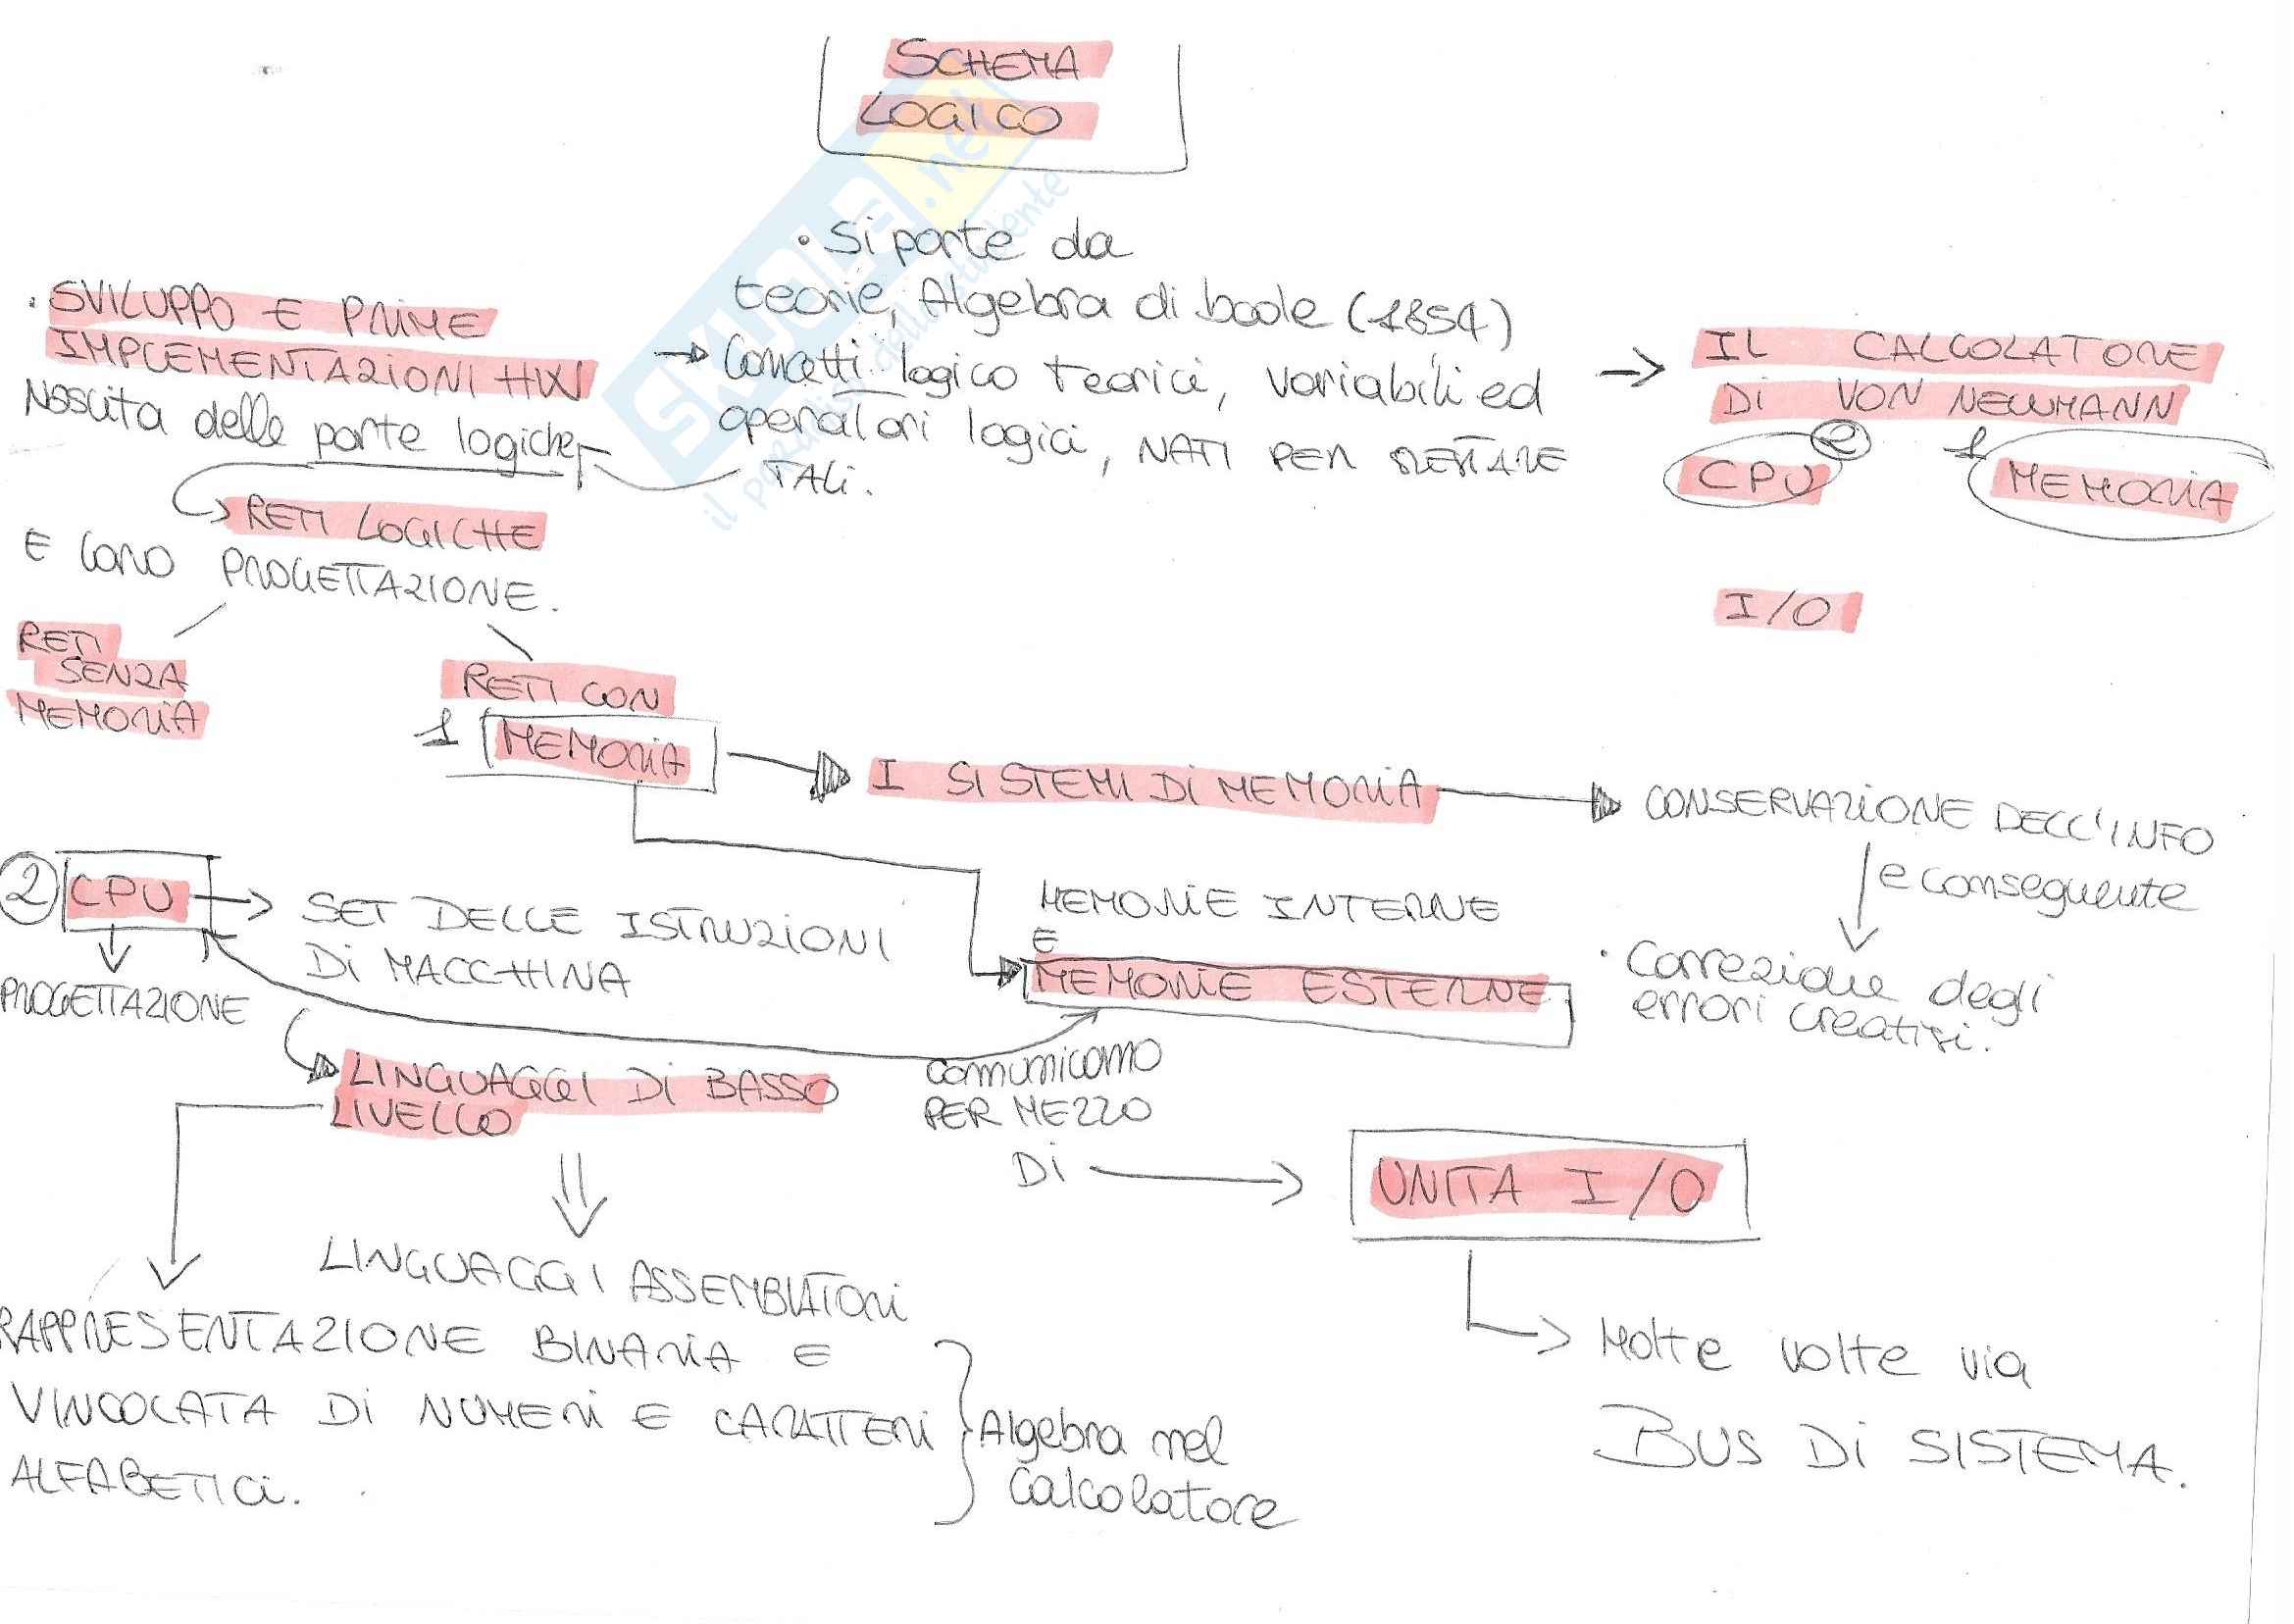 SCHEMA
LOGICO
• Si parte da
teorie, Algebra di boole (1854)
Concetti logico teorici, variabili ed
operatori logici, NATI PER RESTARE
TALi.
• SVILUPPO E PRIME
IMPLEMENTAZIONI HW
Nascita delle porte logiche
RETI LOGICHE
E LORO PROGETTAZIONE.
RETI
SENZA
MEMORIA
RETI CON
1 MEMORIA
IL CALCOLATORE
Di VON NEWMANN
CPU 2
1 MEMORIA
I/O
I SISTEMI Di MEMORIA
CONSERVAZIONE DELL'INFO
e conseguente
• Correzione degli
errori creatisi.
2 CPU
SET DELLE ISTRUZIONI
Di MACCHINA
PROGETTAZIONE
MEMORIE INTERNE
E
MEMORIE ESTERNE
LINGUAGGI Di BASSO
LIVELLO
comunicano
PER MEZZO
Di
UNITA I/O
LINGUAGGI ASSEMBLATORI
RAPPRESENTAZIONE BINARIA E
VINCOLATA Di NUMERI E CARATTERI
ALFABETICI.
Algebra nel
Calcolatore
Molte volte via
BUS Di SISTEMA.
SKUOLA.net
il paradiso dello studente